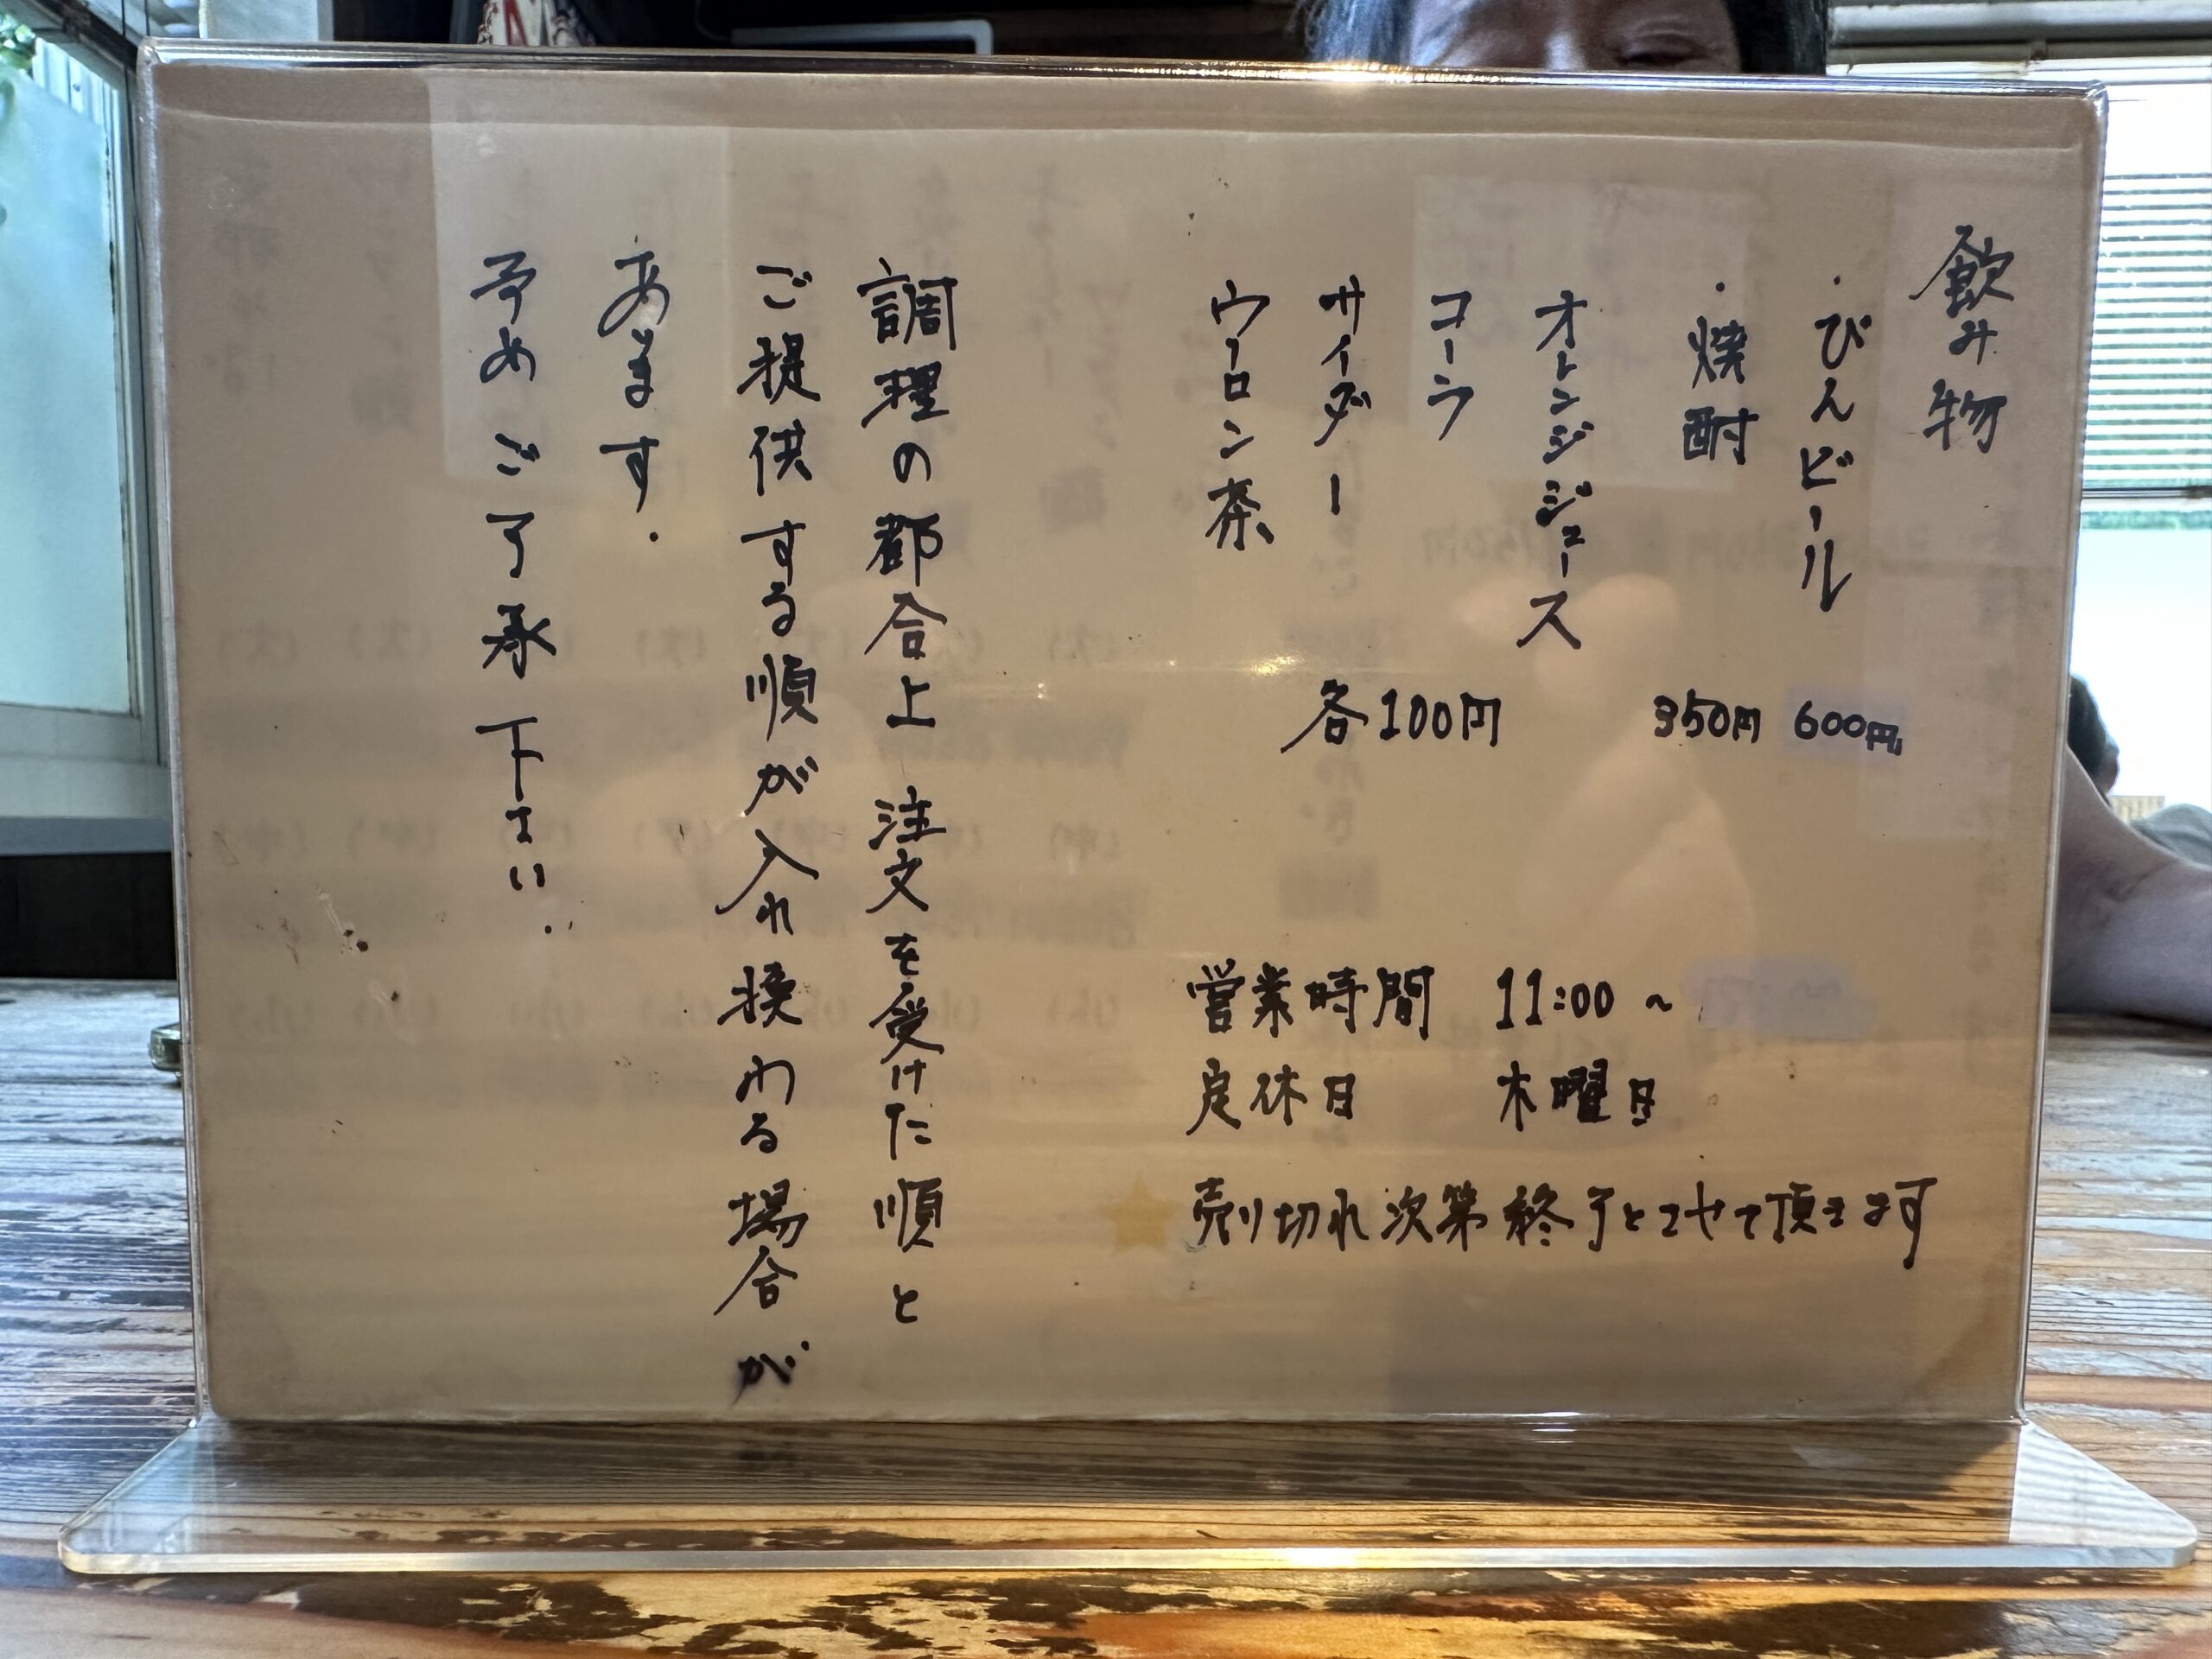 飲み物
・びんビール 600円
・焼酎 350円
オレンジジュース
コーラ
サイダー
ウーロン茶
各100円
営業時間 11:00 ~
定休日 木曜日
売り切れ次第終了とさせて頂きます
調理の都合上 注文を受けた順と
ご提供する順が入れ換わる場合が
あります.
予めご了承下さい.